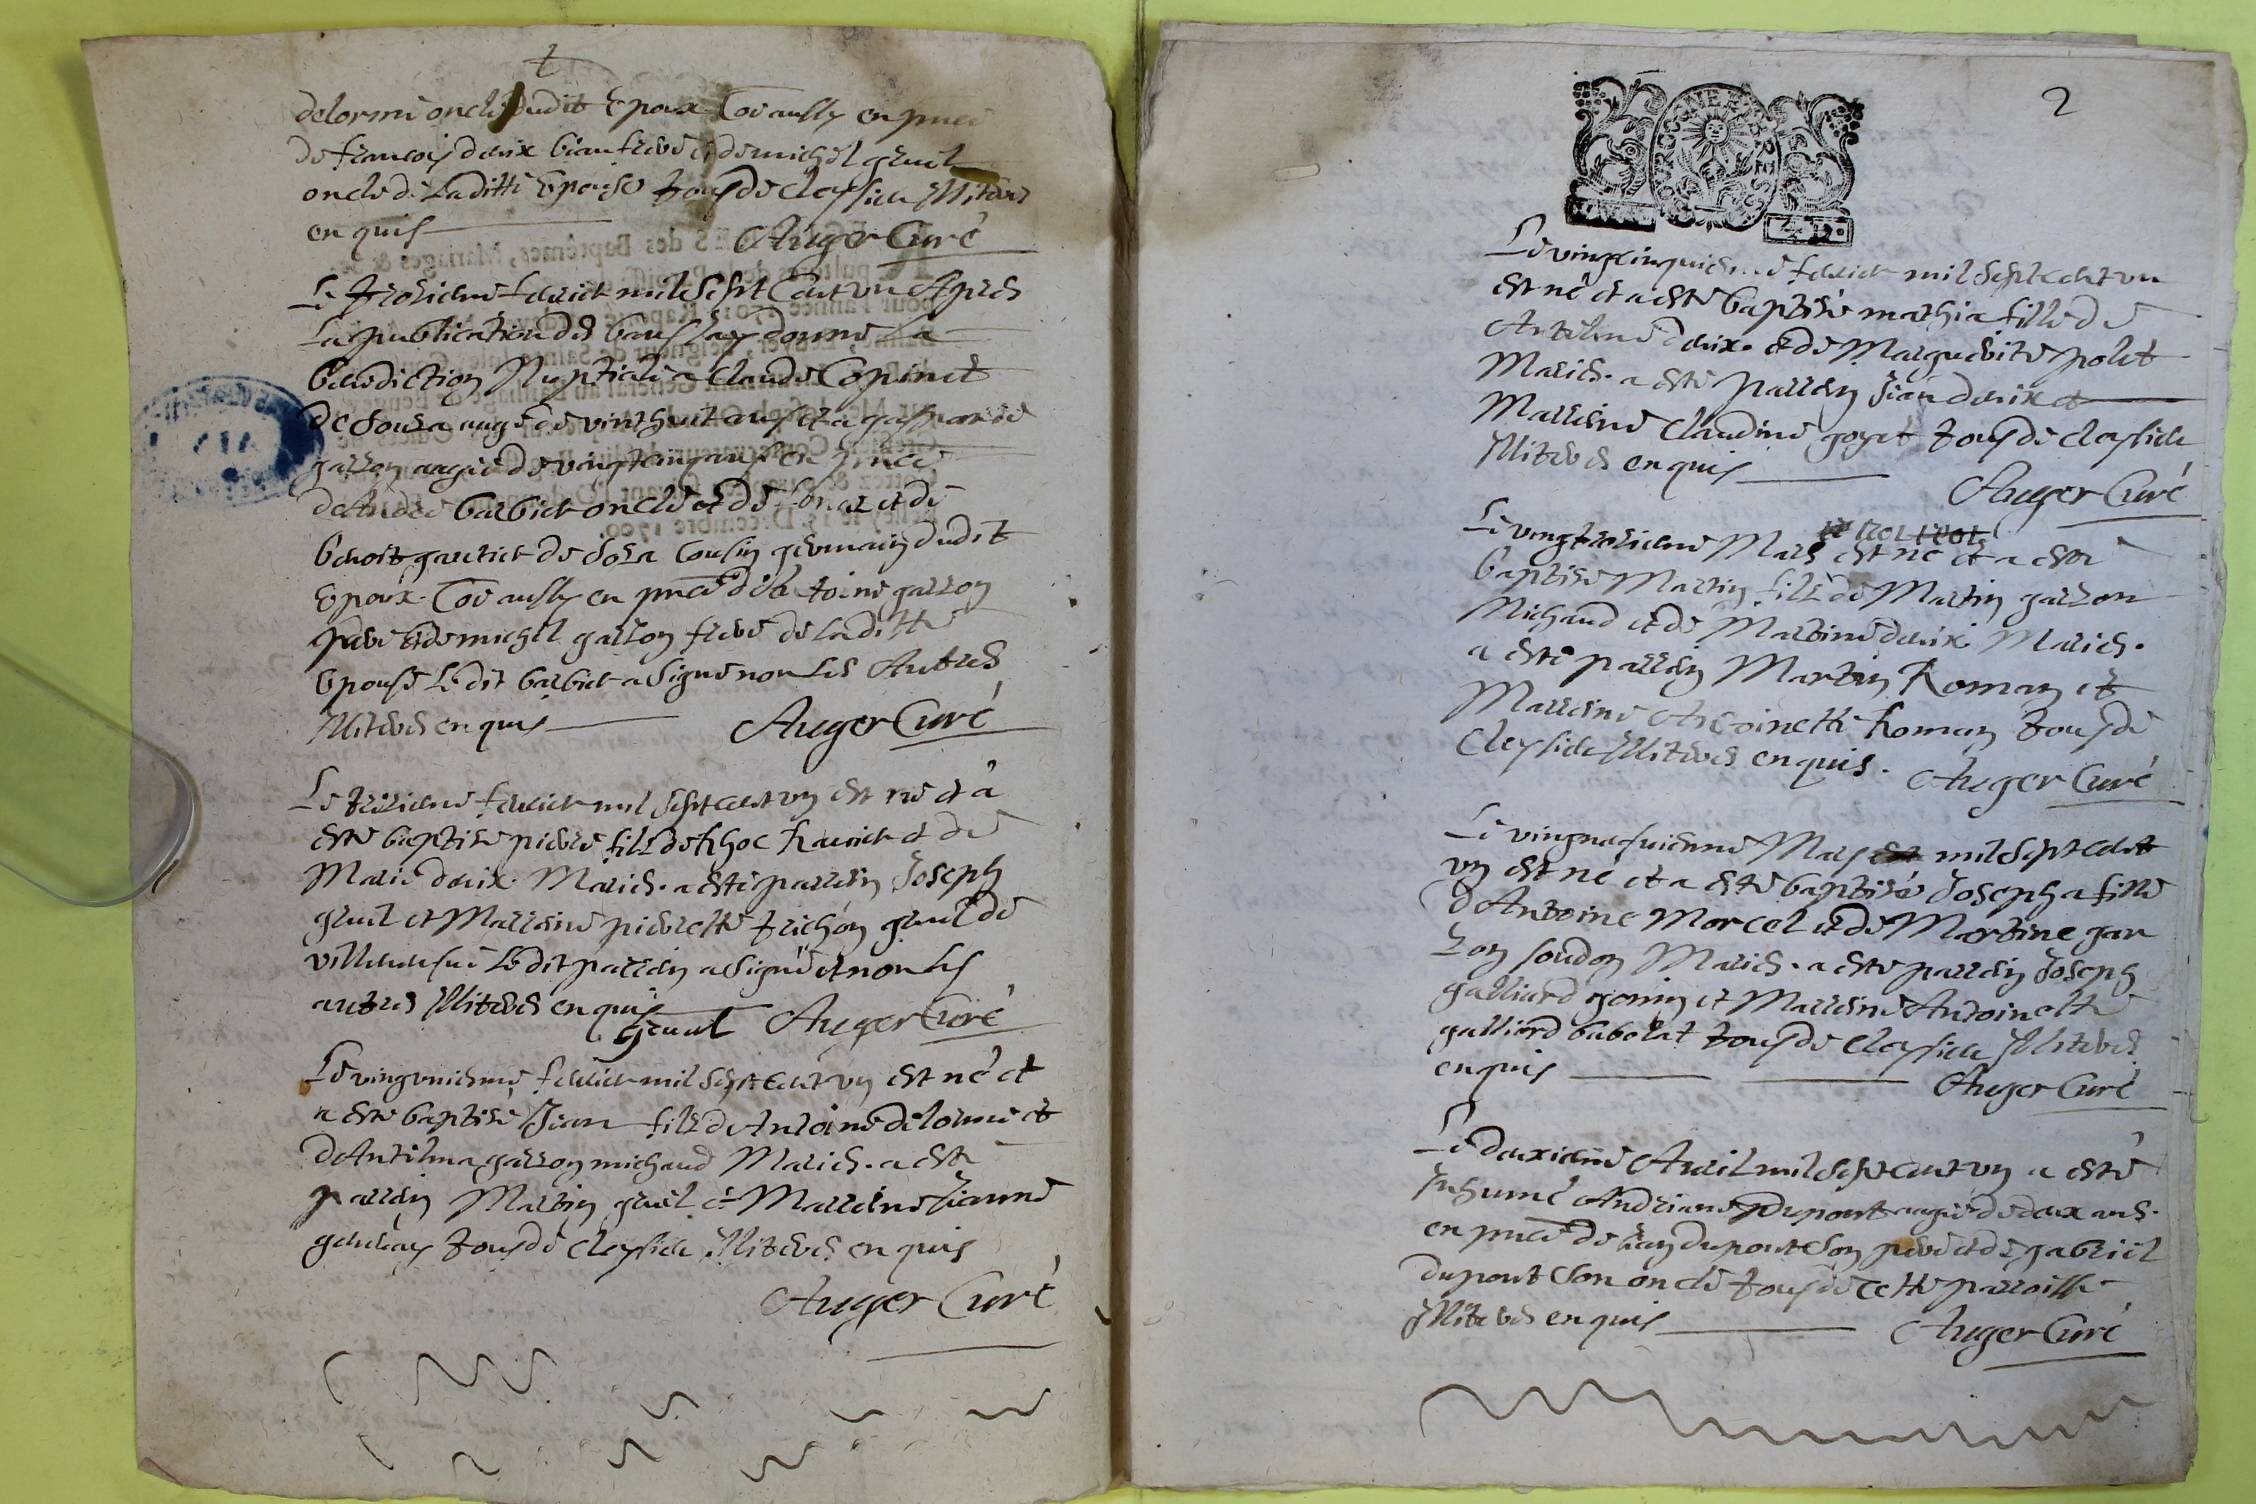 delorme oncle dudit Epoux Com̄e aussy en pnce
de francois deux beau frere et de michel gruel
oncle de Laditte Epouse tous de Cleyssieu Illiteres
en quis Auger Curé
Le troisieme feburier mil Sept Cent un Apres
La publication des bans Jay donné La
benediction Nuptiale a Claude Copinet
de Souza aagé de vint huit ans et a
garzon aagée de vingtcinq ans En pnce
de barbier oncle et de et de
benoit gautier de Soza Cousin germain dudit
Epoux. Com̄e aussy en pnce dAntoine garzon
pere et de michel garzon frere de laditte
Epouse Le dit barbier a Signé non Les Autres
Illiteres en quis Auger Curé
Le treizieme feburier mil Sept cent un est né et a
esté baptisé pierre fils de et de
Marie deux. Mariés. a esté parrein Joseph
gruel et Marreine pierrette trichon gruel de
Le dit parrein a Signé et non les
autres Illiteres en quis
Gruel Auger Curé
Le vingunieme feburier mil Sept Cent un est né et
a esté baptisé Jean fils dAntoine delorme et
dAntelma garzon michaud Mariés. a esté
parrein Martin gruel et Marreine Jeanne
tous de Cleyssieu Illiteres en quis
Auger Curé
2
Le vingtcinquieme feburier mil Sept cent un
est né et a esté baptisée mathia fille de
Antelme deux. et de Marguerite polet
Mariés. a esté parrein Jean deux et
Marreine Claudine goyet tous de Cleyssieu
Illiteres en quis
Auger Curé
Le vingtroisieme Mars est né et a esté
baptisé Martin fils de Martin garzon
Michaud et de Martine deux. Mariés.
a esté parrein Martin Roman et
Marreine Antoinette Roman tous de
Cleyssieu Illiteres en quis. Auger Curé
Le vingneufvienme Mars mil Sept cent
un est né et a esté baptisée Josepha fille
dAntoine Morcel et de Martine gar
zon soudon Mariés. a esté parrein Joseph
galliard gonin et Marreine Antoinette
galliard babolat tous de Cleyssieu Illiteres
en quis Auger Curé
Le deuxieme Auril mil Sept cent un a esté
Inhumé Andriane Dupont aagée de deux ans.
en pnce de Jean dupont Son pere et de gabriel
dupont Son oncle tous de cette parroisse
Illiteres en quis Auger Curé